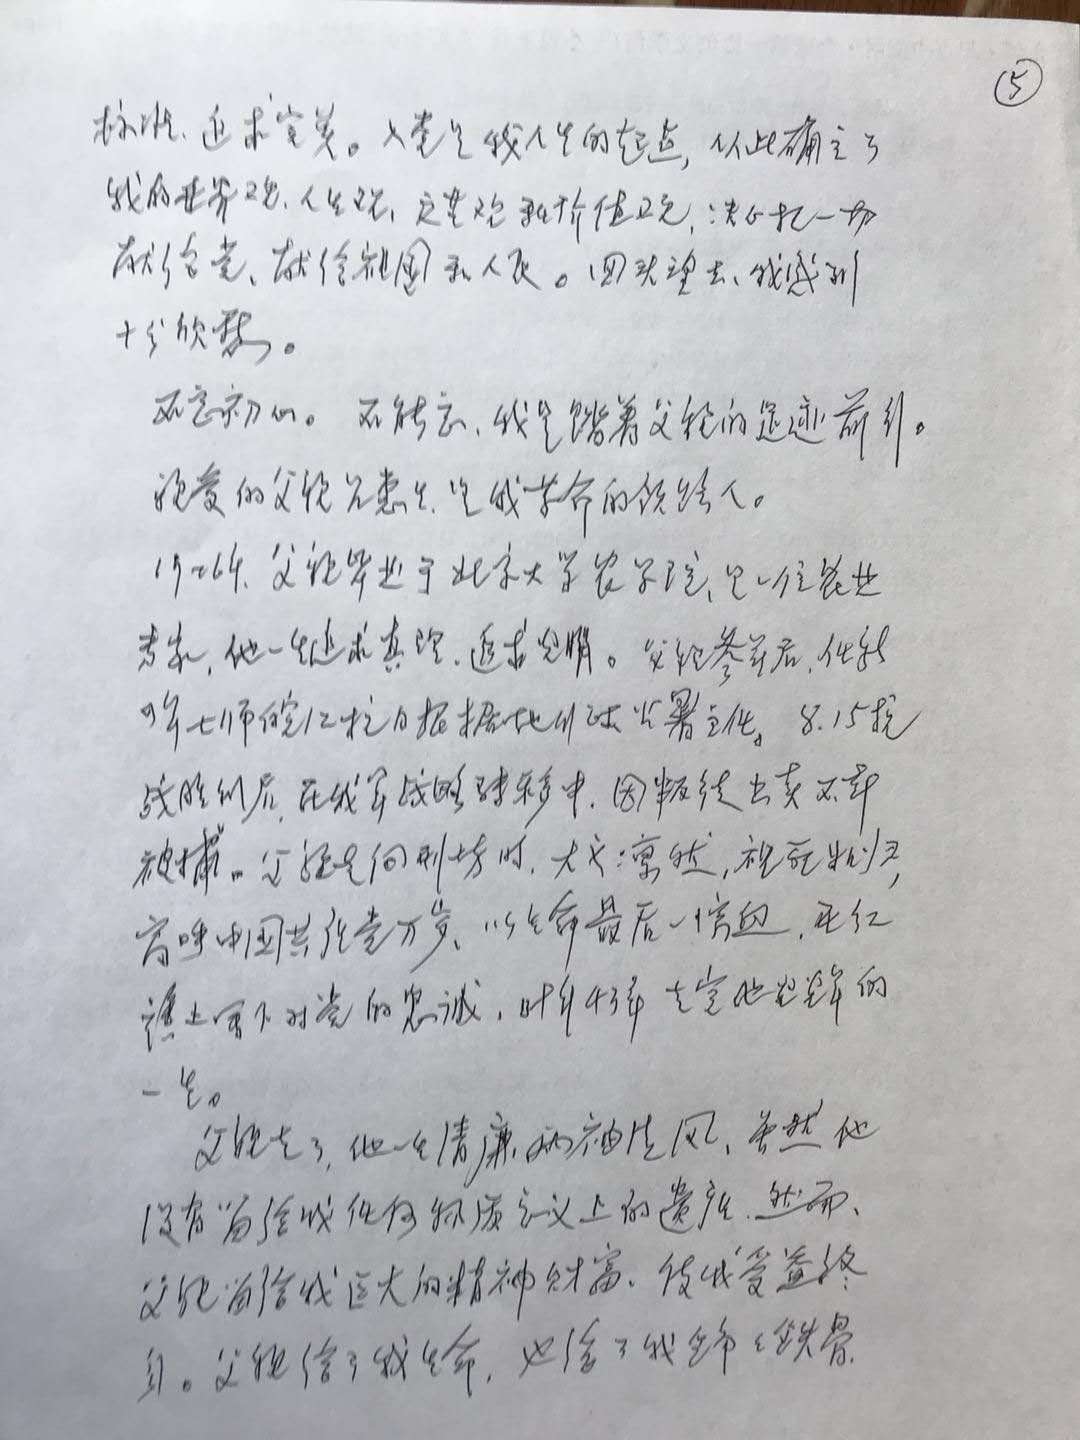 ⑤
标准、追求完美。入党是我人生的起点，从此确立了
我的世界观、人生观、和价值观，决心把一切
献给党、献给祖国和人民。回头望去、我感到
十分欣慰。
不忘初心。不能忘、我是踏着父亲的足迹前引。
亲爱的父亲是我革命的领路人。
1926年、父亲毕业于北京大学农学院、是一位农业
专家，他一生追求真理、追求光明。父亲参军后、任新
四军七师皖江抗日根据地主任。8.15抗
战胜利后、在我军战略转移中、因叛徒出卖不幸
被捕。父亲走向刑场时、大义凛然，视死如归，
高呼中国共产党万岁、以生命最后一腔血、在红
旗上写下对党的忠诚，时年43年走完他光辉的
一生。
父亲走了，他一生清廉、两袖清风、虽然他
没有留给我任何物质意义上的遗产、然而、
父亲留给我巨大的精神财富、使我受益终
身。父亲给了我生命，也给了我铁骨